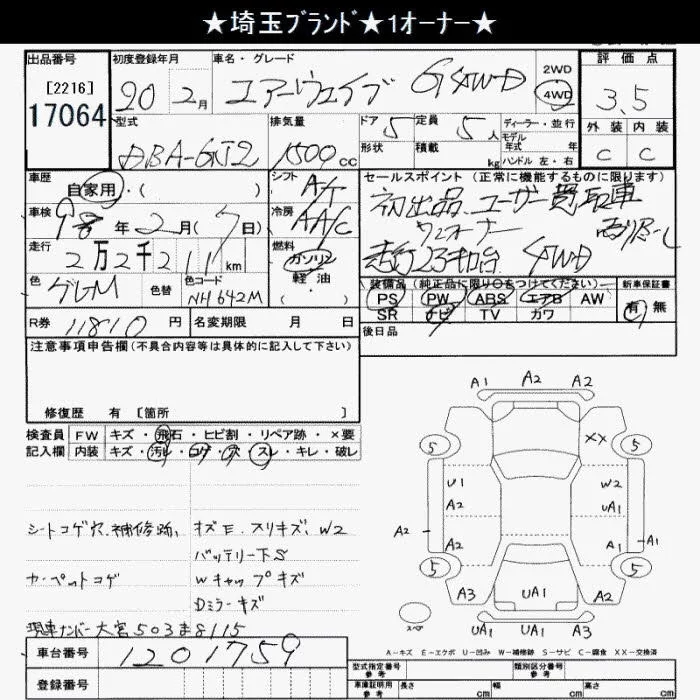 ★埼玉ﾌﾞﾗﾝﾄﾞ★1オーナー★
出品番号
[2216]
17064
初度登録年月
20 2月
車名・グレード
エアーウェイブ G 4WD
2WD
4WD
評価点
3.5
外装 内装
C C
型式
DBA-GJ2
排気量
1500cc
ドア 5
形状
定員 5人
積載 kg
ディーラー・並行
モデル年式 年
ハンドル 左・右
車歴
自家用・( )
シフト A/T
車検
年2月(7日)
冷房 AAC
走行
2万2千211km
燃料
ガソリン
軽油
・
色 グレM
色替
色コード NH642M
セールスポイント (正常に機能するものに限ります)
初出品、ユーザー買取車
ワンオーナー
4WD
装備品 (純正品に限り○をつけてください)
PS PW ABS エアB AW
SR ナビ TV カワ
新車保証書
有 無
R券 11810円
名変期限 月 日
後日品
注意事項申告欄(不具合内容等は具体的に記入して下さい)
修復歴 有 [箇所 ]
検査員
記入欄
FW キズ・飛石・ヒビ割・リペア跡・×要
内装 キズ・汚レ・コゲ・穴・スレ・キレ・破レ
シートコゲ穴、補修跡、
カーペットコゲ
キズE、スリキズ、W2
バッテリー下S
Wキャップキズ
Dミラーキズ
現車ナンバー大宮503ま8115
A1 A2 A2
5 XX 5
U1 W2
A2 A2
A2 A1 A1
A2 UA1
5 5
A3 UA1 A2
スペア
UA1 A3 UA1
A-キズ E-エクボ U-凹み W-補修跡 S-サビ C-腐食 XX-交換済
車台番号
1201759
登録番号
型式指定番号
参考
類別区分番号
参考
車庫証明用
参考
長さ cm
幅 cm
高さ cm